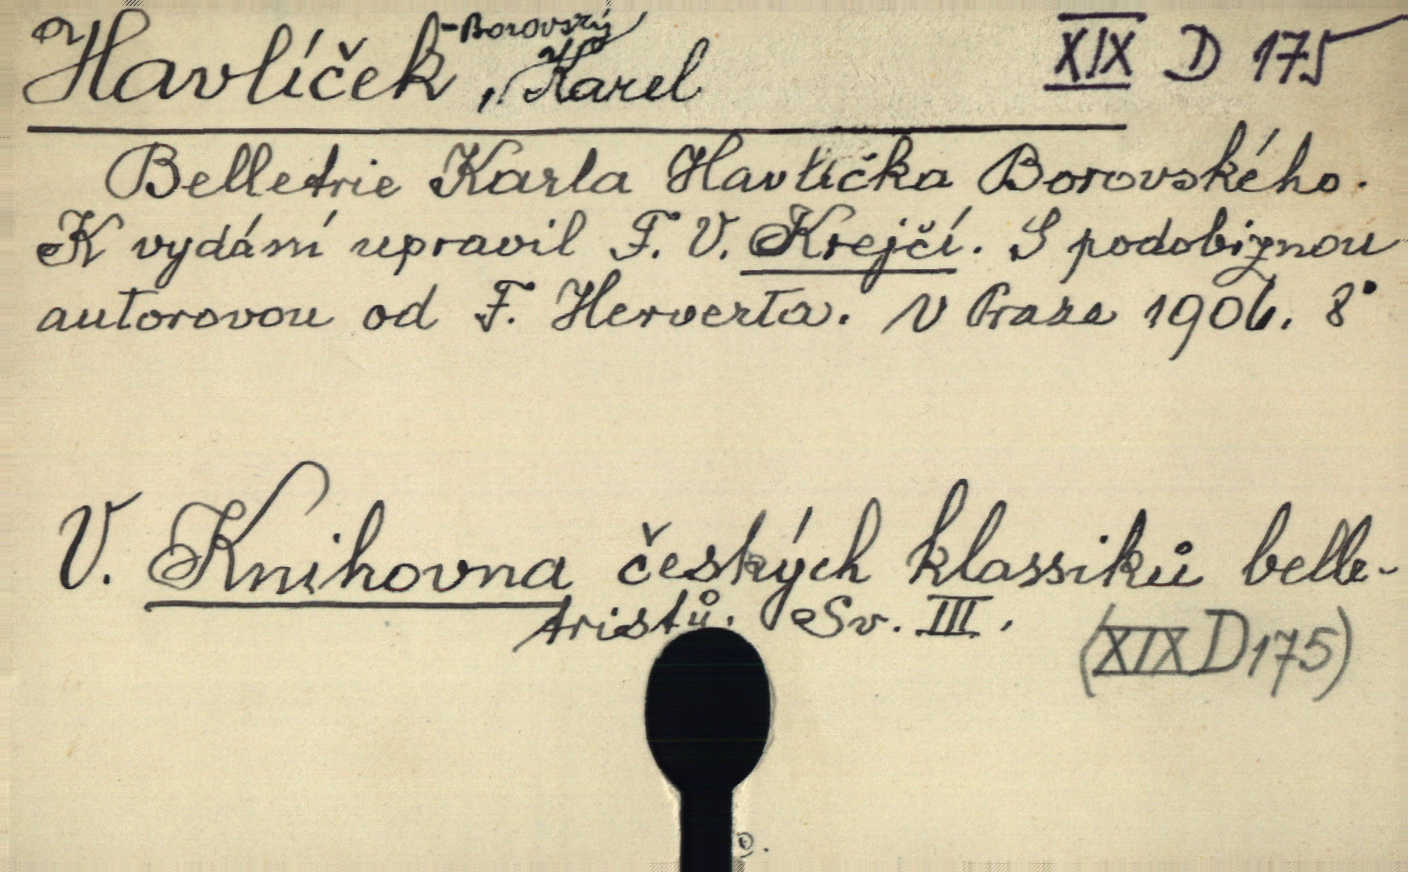 Havlíček -Borovský, Karel XIX D 175
Belletrie Karla Havlíčka Borovského.
K vydání upravil F. V. Krejčí. S podobiznou
autorovou od F. Herverta. V Praze 1906. 8°
V. Knihovna českých klassiků belle-
tristů. Sv. III.
(XIX D 175)